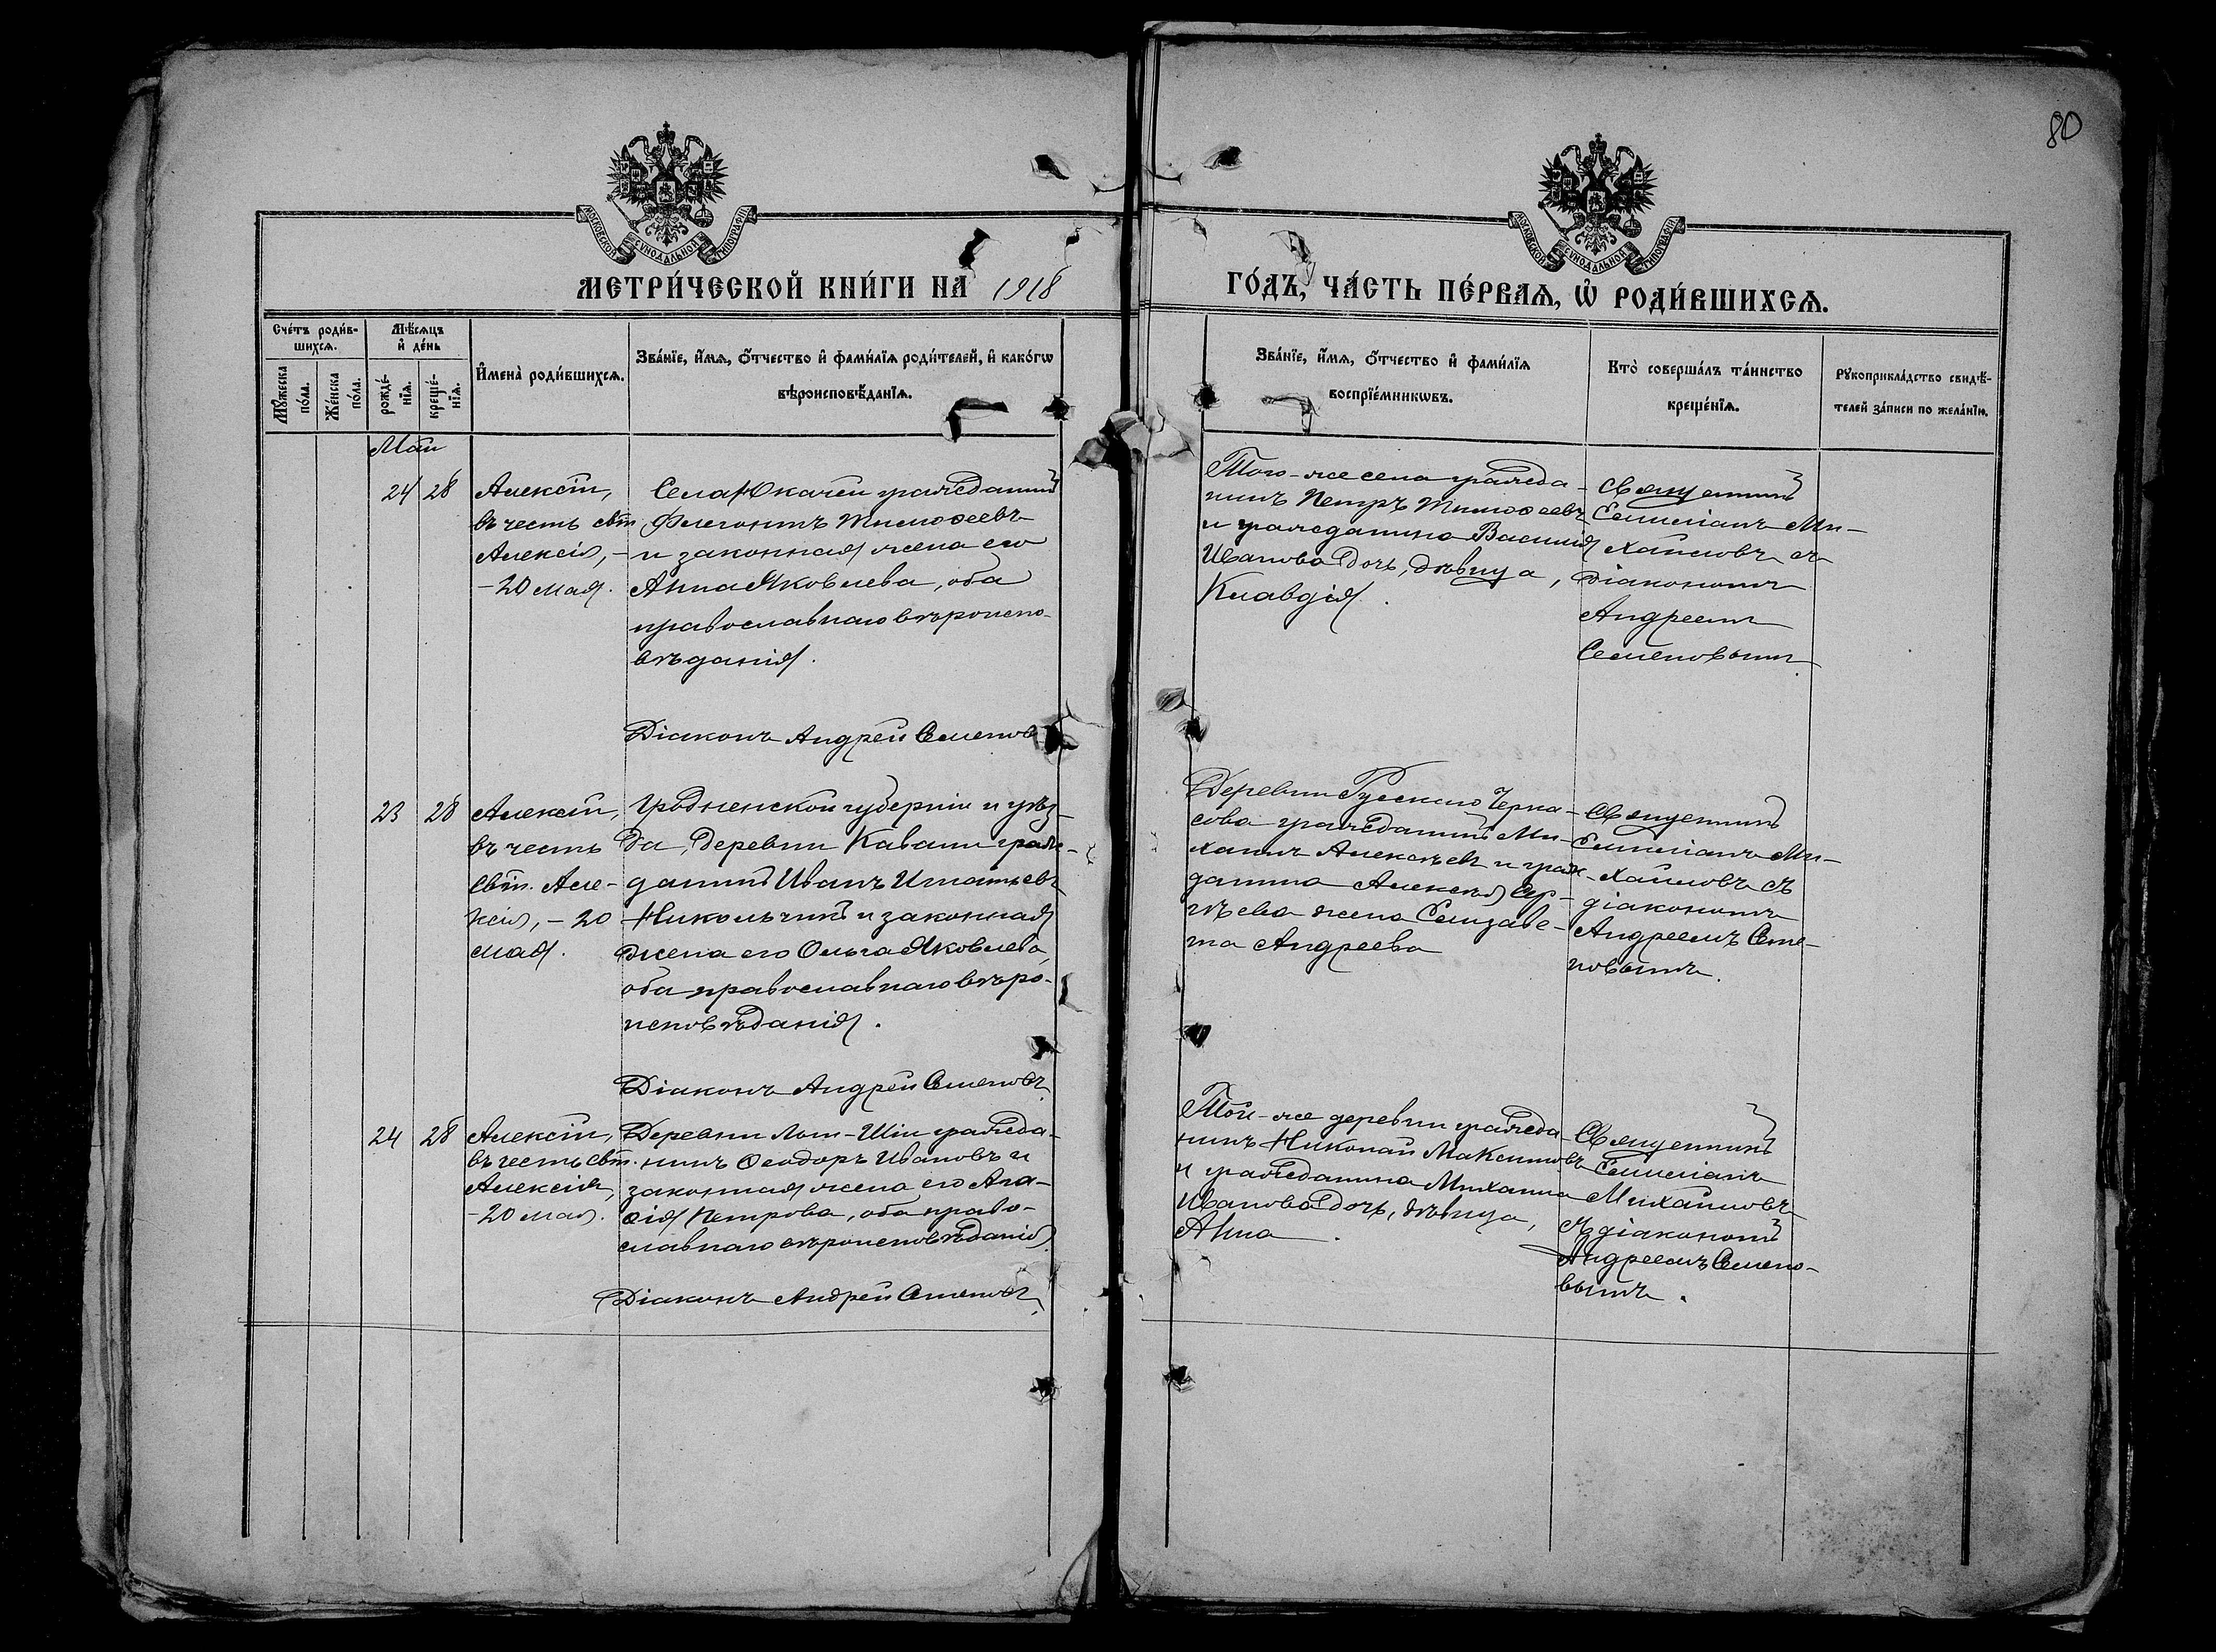 80
МОСКОВСКОЙ СѴНОДАЛЬНОЙ ТИПОГРАФІИ
МОСКОВСКОЙ СѴНОДАЛЬНОЙ ТИПОГРАФІИ
МЕТРИ́ЧЕСКОЙ КНИ́ГИ НА 1918
ГО́ДЪ, ЧА́СТЬ ПЕ́РВАѦ, Ѡ҆ РОДИ́ВШИХСѦ.
Сче́тъ роди́в-
шихсѧ.
Мꙋ́жеска
по́ла.
Же́нска
по́ла.
Мѣ́сѧцъ
и҆ де́нь
рожде́-
нїѧ.
креще́-
нїѧ.
И҆мена̀ роди́вшихсѧ.
Зва́нїе, и҆́мѧ, ѻ҆́тчество и҆ фами́лїѧ роди́телей, и҆ како́гѡ
вѣроисповѣ́данїѧ.
Зва́нїе, и҆́мѧ, ѻ҆́тчество и҆ фами́лїѧ
воспрїе́мникѡвъ.
Кто̀ соверша́лъ та́инство
креще́нїѧ.
Рꙋкоприкла́дство свидѣ́-
телей за́писи по жела́нїю.
Май
24 28
Алексій,
въ честь свт.
Алексія, -
- 20 мая.
Села Юкачей гражданинъ
Флегонтъ Тимоѳеевъ
и законная жена его
Анна Яковлева, оба
православнаго вѣроиспо-
вѣданія.
Діаконъ Андрей Семеновъ
Того-же села гражда-
нинъ Петръ Тимоѳеевъ
и гражданина Василія
Иванова дочь, дѣвица,
Клавдія.
Священникъ
Емиліанъ Ми-
хайловъ съ
діакономъ
Андреемъ
Семеновымъ.
23 28
Алексій,
въ честь
свт. Але-
ксія, - 20
мая.
Гродненской губерніи и уѣз-
да, деревни Кавали граж-
данинъ Иванъ Игнатьевъ
Никольчикъ и законная
жена его Ольга Яковлева,
оба православнаго вѣро-
исповѣданія.
Діаконъ Андрей Семеновъ.
Деревни Русскаго Черка-
сова гражданинъ Ми-
хаилъ Алексѣевъ и граж-
данина Алексѣя Сер-
гѣева жена Елизаве-
та Андреева
Священникъ
Емиліанъ Ми-
хайловъ съ
діакономъ
Андреемъ Семе-
новымъ.
24 28
Алексій,
въ честь свт.
Алексія,
- 20 мая.
Деревни Лоп-Шіи гражда-
нинъ Ѳеодоръ Ивановъ и
законная жена его Ага-
ѳія Петрова, оба право-
славнаго вѣроисповѣданія.
Діаконъ Андрей Семеновъ.
Той-же деревни гражда-
нинъ Николай Максимовъ
и гражданина Михаила
Иванова дочь, дѣвица,
Анна.
Священникъ
Емиліанъ
Михайловъ
съ діакономъ
Андреемъ Семено-
вымъ.